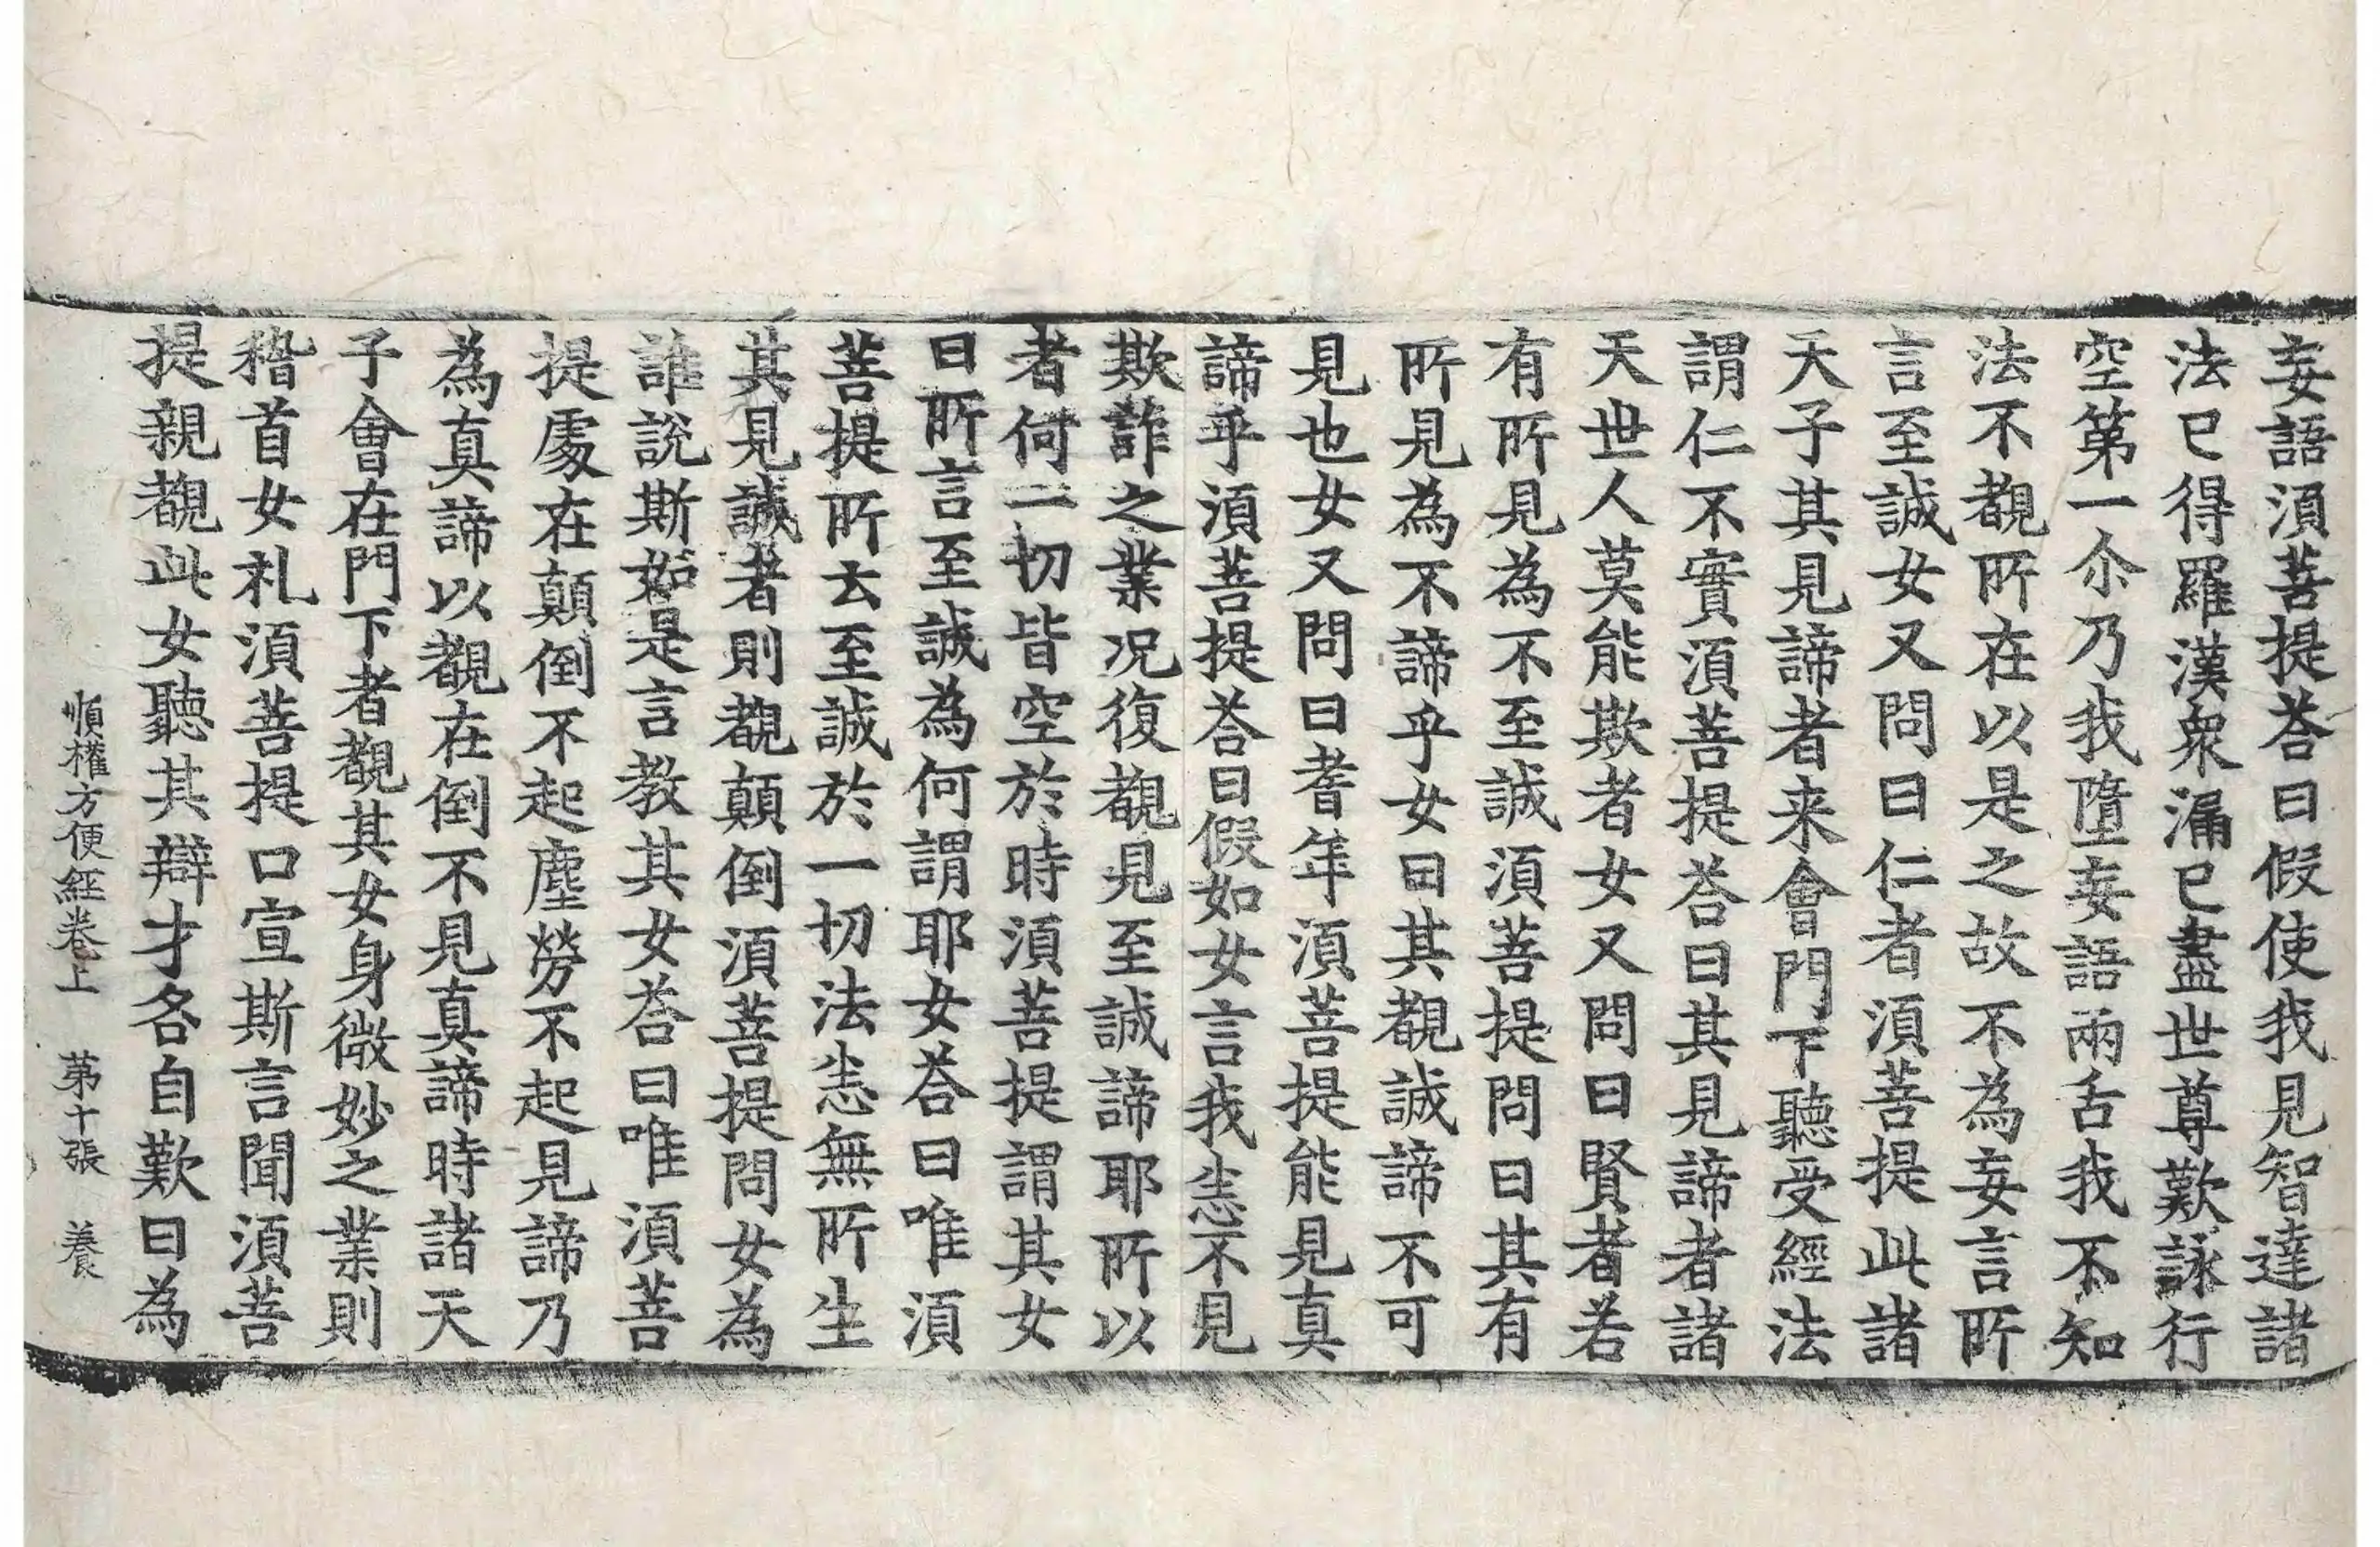 妄語湏菩提荅曰假使我見智達諸
法已得羅漢衆漏已盡世尊歎詠行
空第一尒乃我墮妄語兩舌我不知
法不覩所在以是之故不為妄言所
言至誠女又問曰仁者湏菩提此諸
天子其見諦者来會門下聽受經法
謂仁不實湏菩提荅曰其見諦者諸
天世人莫能欺者女又問曰賢者若
有所見為不至誠湏菩提問曰其有
所見為不諦乎女曰其覩誠諦不可
見也女又問曰耆年湏菩提能見真
諦乎湏菩提荅曰假如女言我恙不見
欺詐之業况復覩見至誠諦耶所以
者何一切皆空於時湏菩提謂其女
曰所言至誠為何謂耶女荅曰唯湏
菩提所去至誠於一切法恙無所生
其見誠者則覩顛倒湏菩提問女為
誰說斯如是言教其女荅曰唯湏菩
提處在顛倒不起塵勞不起見諦乃
為真諦以覩在倒不見真諦時諸天
子會在門下者覩其女身微妙之業則
稽首女礼湏菩提口宣斯言聞湏菩
提親覩此女聽其辯才名自歎曰為
順權方便經卷上　第十張　養